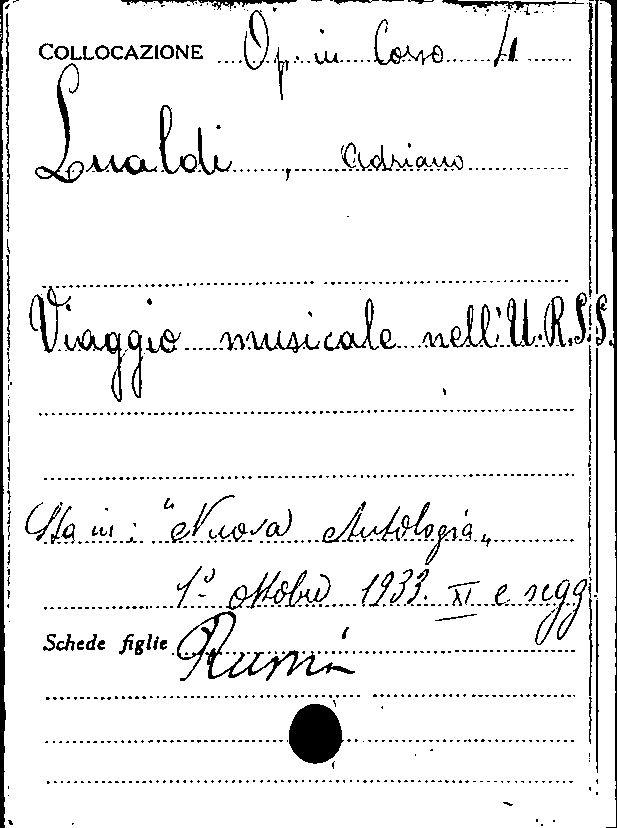 COLLOCAZIONE Op. in Corso 4
Lualdi, Adriano
Viaggio musicale nell'U.R.S.S.
Sta in: "Nuova Antologia„
1º ottobre 1933. XI e segg
Schede figlie